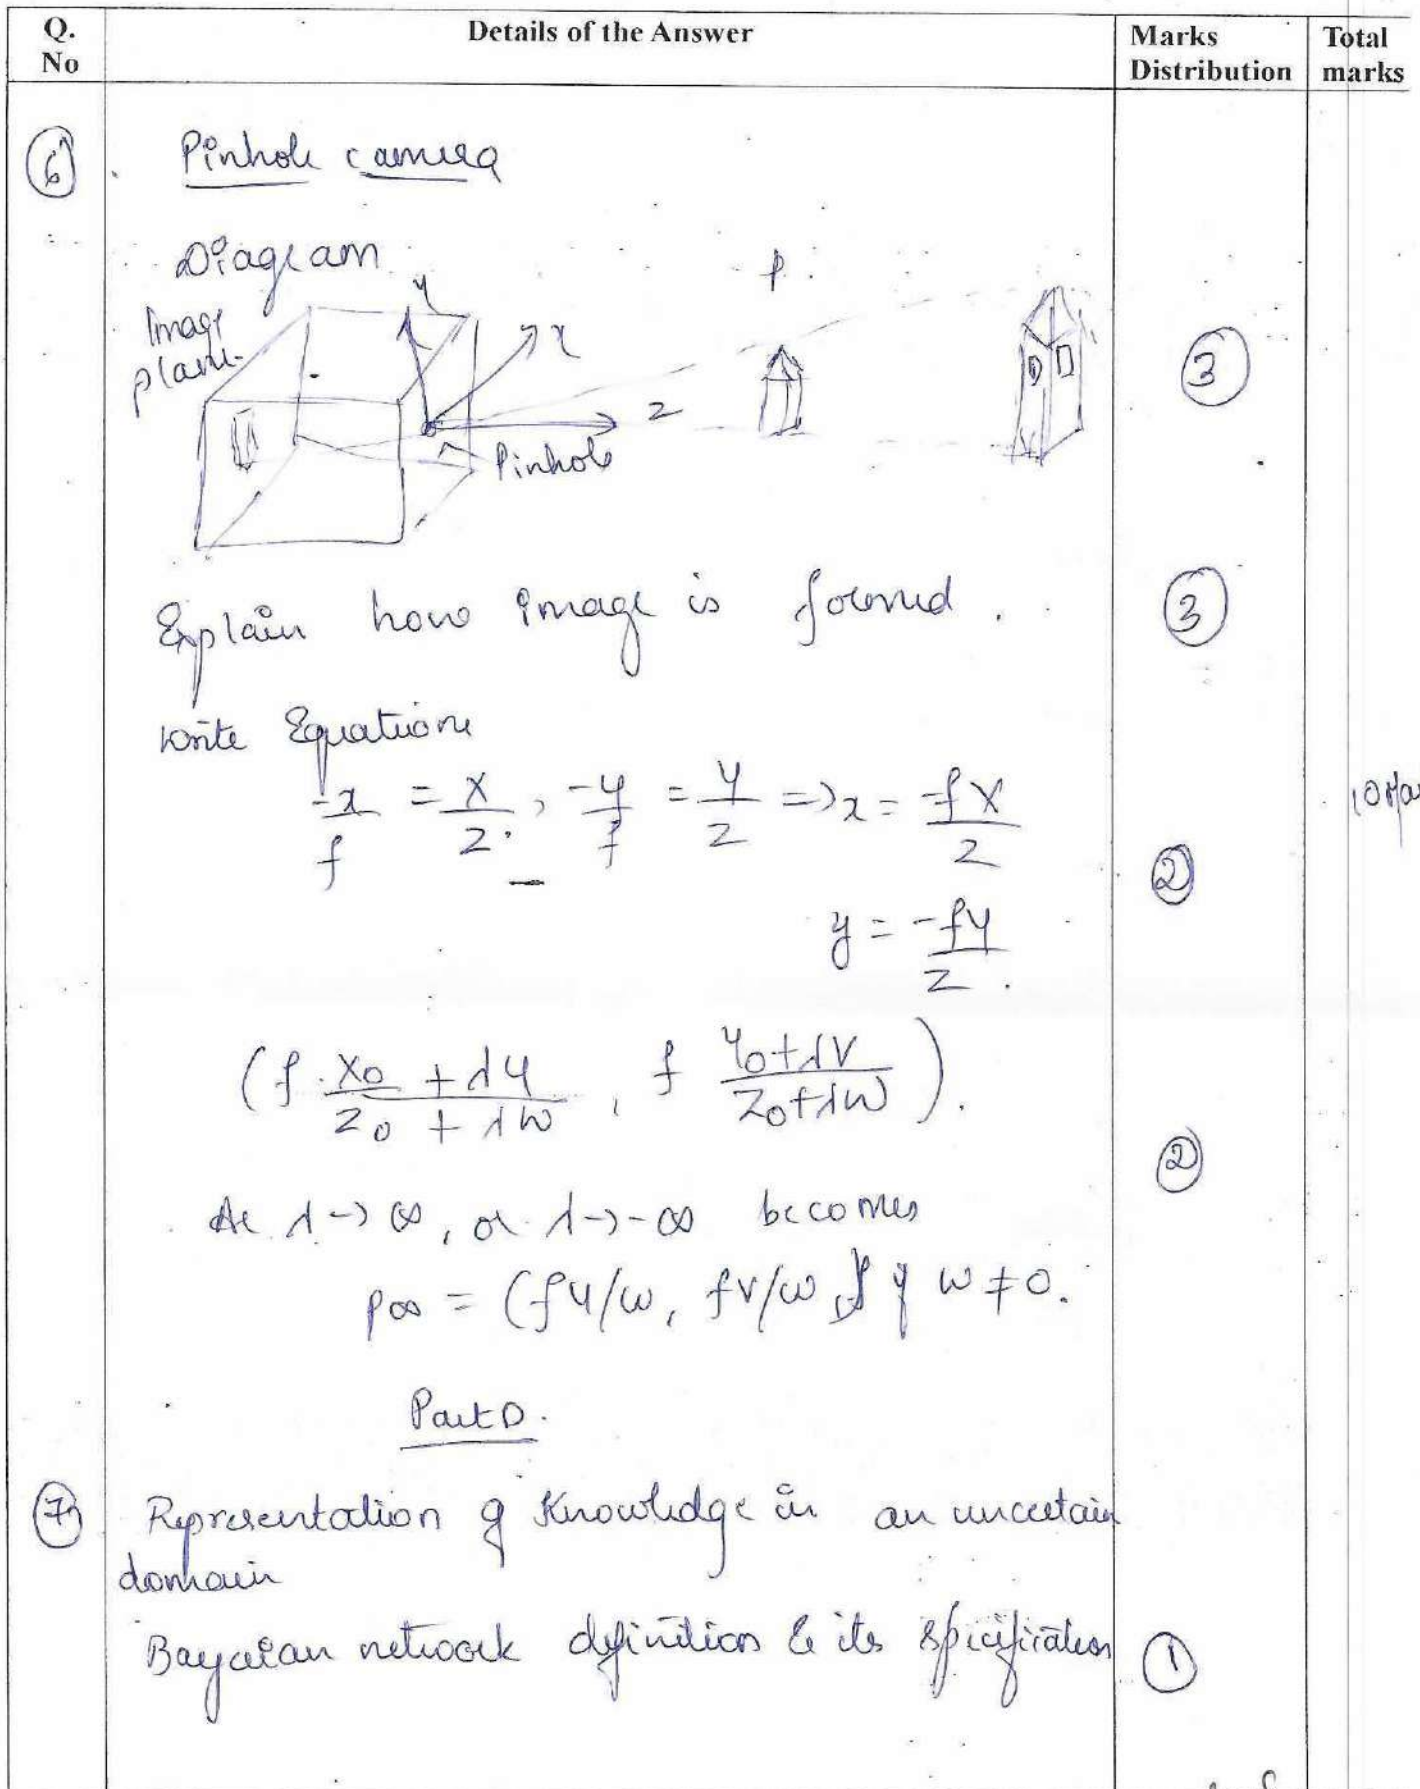 Q. No | Details of the Answer | Marks Distribution | Total marks
6 Pinhole camera
Diagram
P
Image plane
y
x
z
Pinhole
3
Explain how image is formed. 3
Write Equations
-x/f = X/Z, -y/f = Y/Z => x = -fX/Z
2
y = -fY/Z.
(f X0 + λU / Z0 + λW, f Y0 + λV / Z0 + λW).
2
As λ -> ∞, or λ -> -∞ becomes
p∞ = (fU/W, fV/W) if W ≠ 0.
Part D.
7 Representation of Knowledge in an uncertain
domain
Bayesian network definition & its specification 1